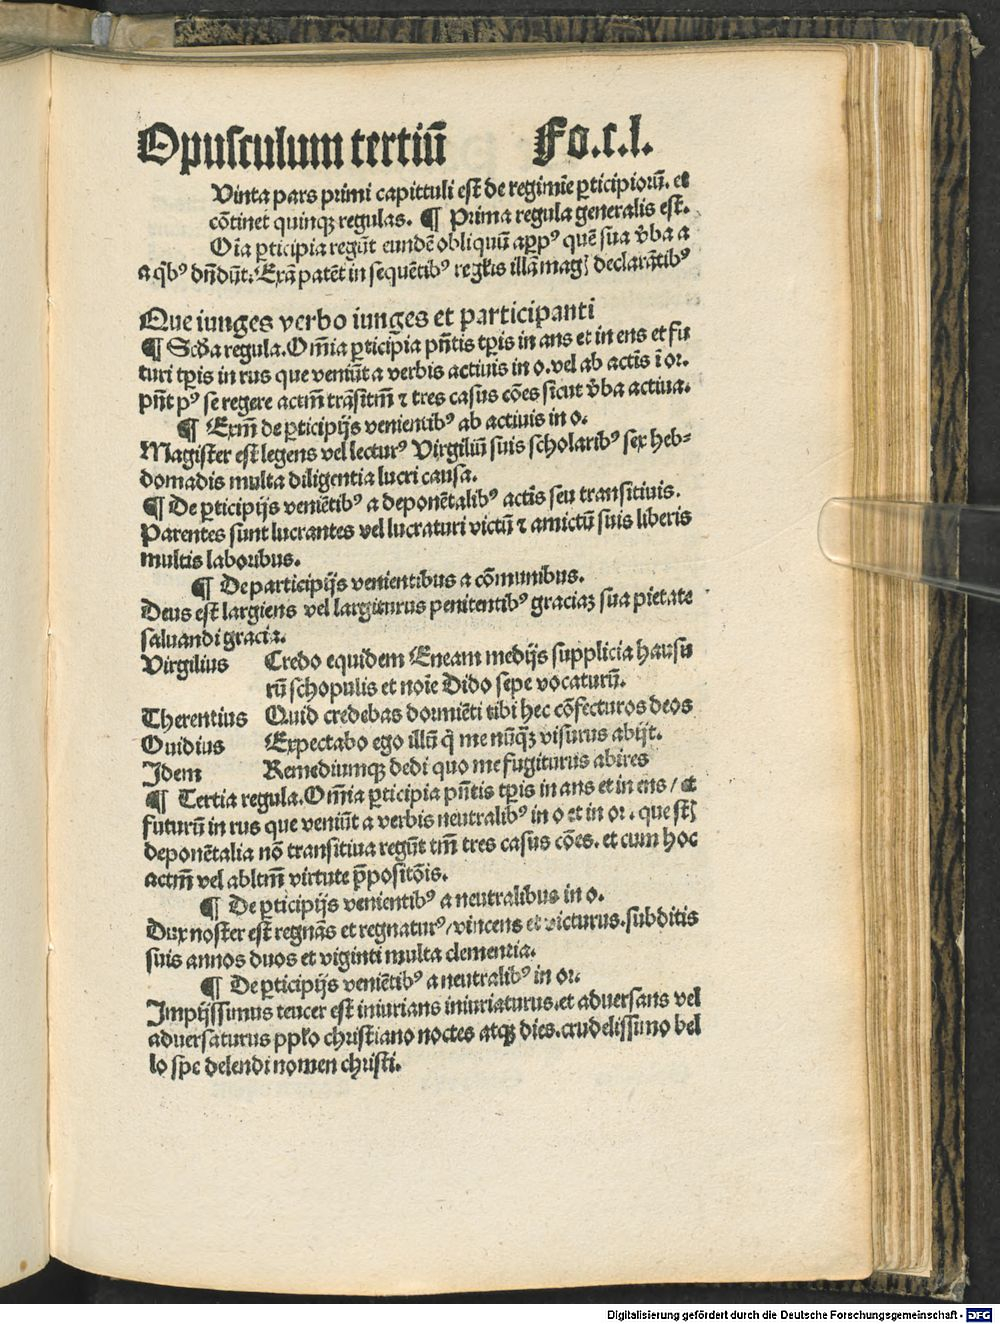 Opusculum tertiū Fo.c.l.
Vinta pars primi capittuli est de regimīe ꝑticipiorū. et
cōtinet quinqꝫ regulas. ¶ Prima regula generalis est.
Oīa ꝑticipia regūt eundē obliquū aꝑpꝰ quē sua v̄ba a
a q̄bꝰ dn̄dūt. Exā patēt in sequētibꝰ regl̄is illā magꝭ declarātibꝰ
Que iunges verbo iunges et participanti
¶ Scd̄a regula. Om̄ia ꝑticipia pn̄tis tꝑis in ans et in ens et fu
turi tꝑis in rus que veniūt a verbis actiuis in o. vel ab actis ī or.
pn̄t pꝰ se regere actm̄ trāsitm̄ ⁊ tres casus cōes sicut v̄ba actiua.
¶ Exm̄ de ꝑticipijs venientibꝰ ab actiuis in o.
Magister est legens vel lecturꝰ Virgiliū suis scholaribꝰ sex heb⸗
domadis multa diligentia lucri causa.
¶ De ꝑticipijs veniētibꝰ a deponētalibꝰ actis seu transitiuis.
Parentes sunt lucrantes vel lucraturi victū ⁊ amictū suis liberis
multis laboribus.
¶ De participijs venientibus a cōmunibus.
Deus est largiens vel largiturus penitentibꝰ graciaꝫ sua pietate
saluandi gracia.
Virgilius Credo equidem Eneam medijs supplicia hausu
rū schopulis et noīe Dido sepe vocaturū.
Therentius Quid credebas dormiēti tibi hec cōfecturos deos
Ouidius Expectabo ego illū q̄ me nūq̄ꝫ visurus abijt.
Idem Remediumqꝫ dedi quo me fugiturus abires
¶ Tertia regula. Om̄ia ꝑticipia pn̄tis tꝑis in ans et in ens / et
futurū in rus que veniūt a verbis neutralibꝰ in o et in or. que st̄
deponētalia nō transitiua regūt tm̄ tres casus cōes. et cum hoc
actm̄ vel abltm̄ virtute p̄positōis.
¶ De ꝑticipijs venientibꝰ a neutralibus in o.
Dux noster est regnās et regnaturꝰ / vincens et victurus. subditis
suis annos duos et viginti multa clementia.
¶ De ꝑticipijs veniētibꝰ a neutralibꝰ in or.
Impijssimus teucer est iniurians iniuriaturus. et aduersans vel
aduersaturus ppl̄o christiano noctes atqꝫ dies. crudelissimo bel
lo spe delendi nomen christi.
Digitalisierung gefördert durch die Deutsche Forschungsgemeinschaft - DFG